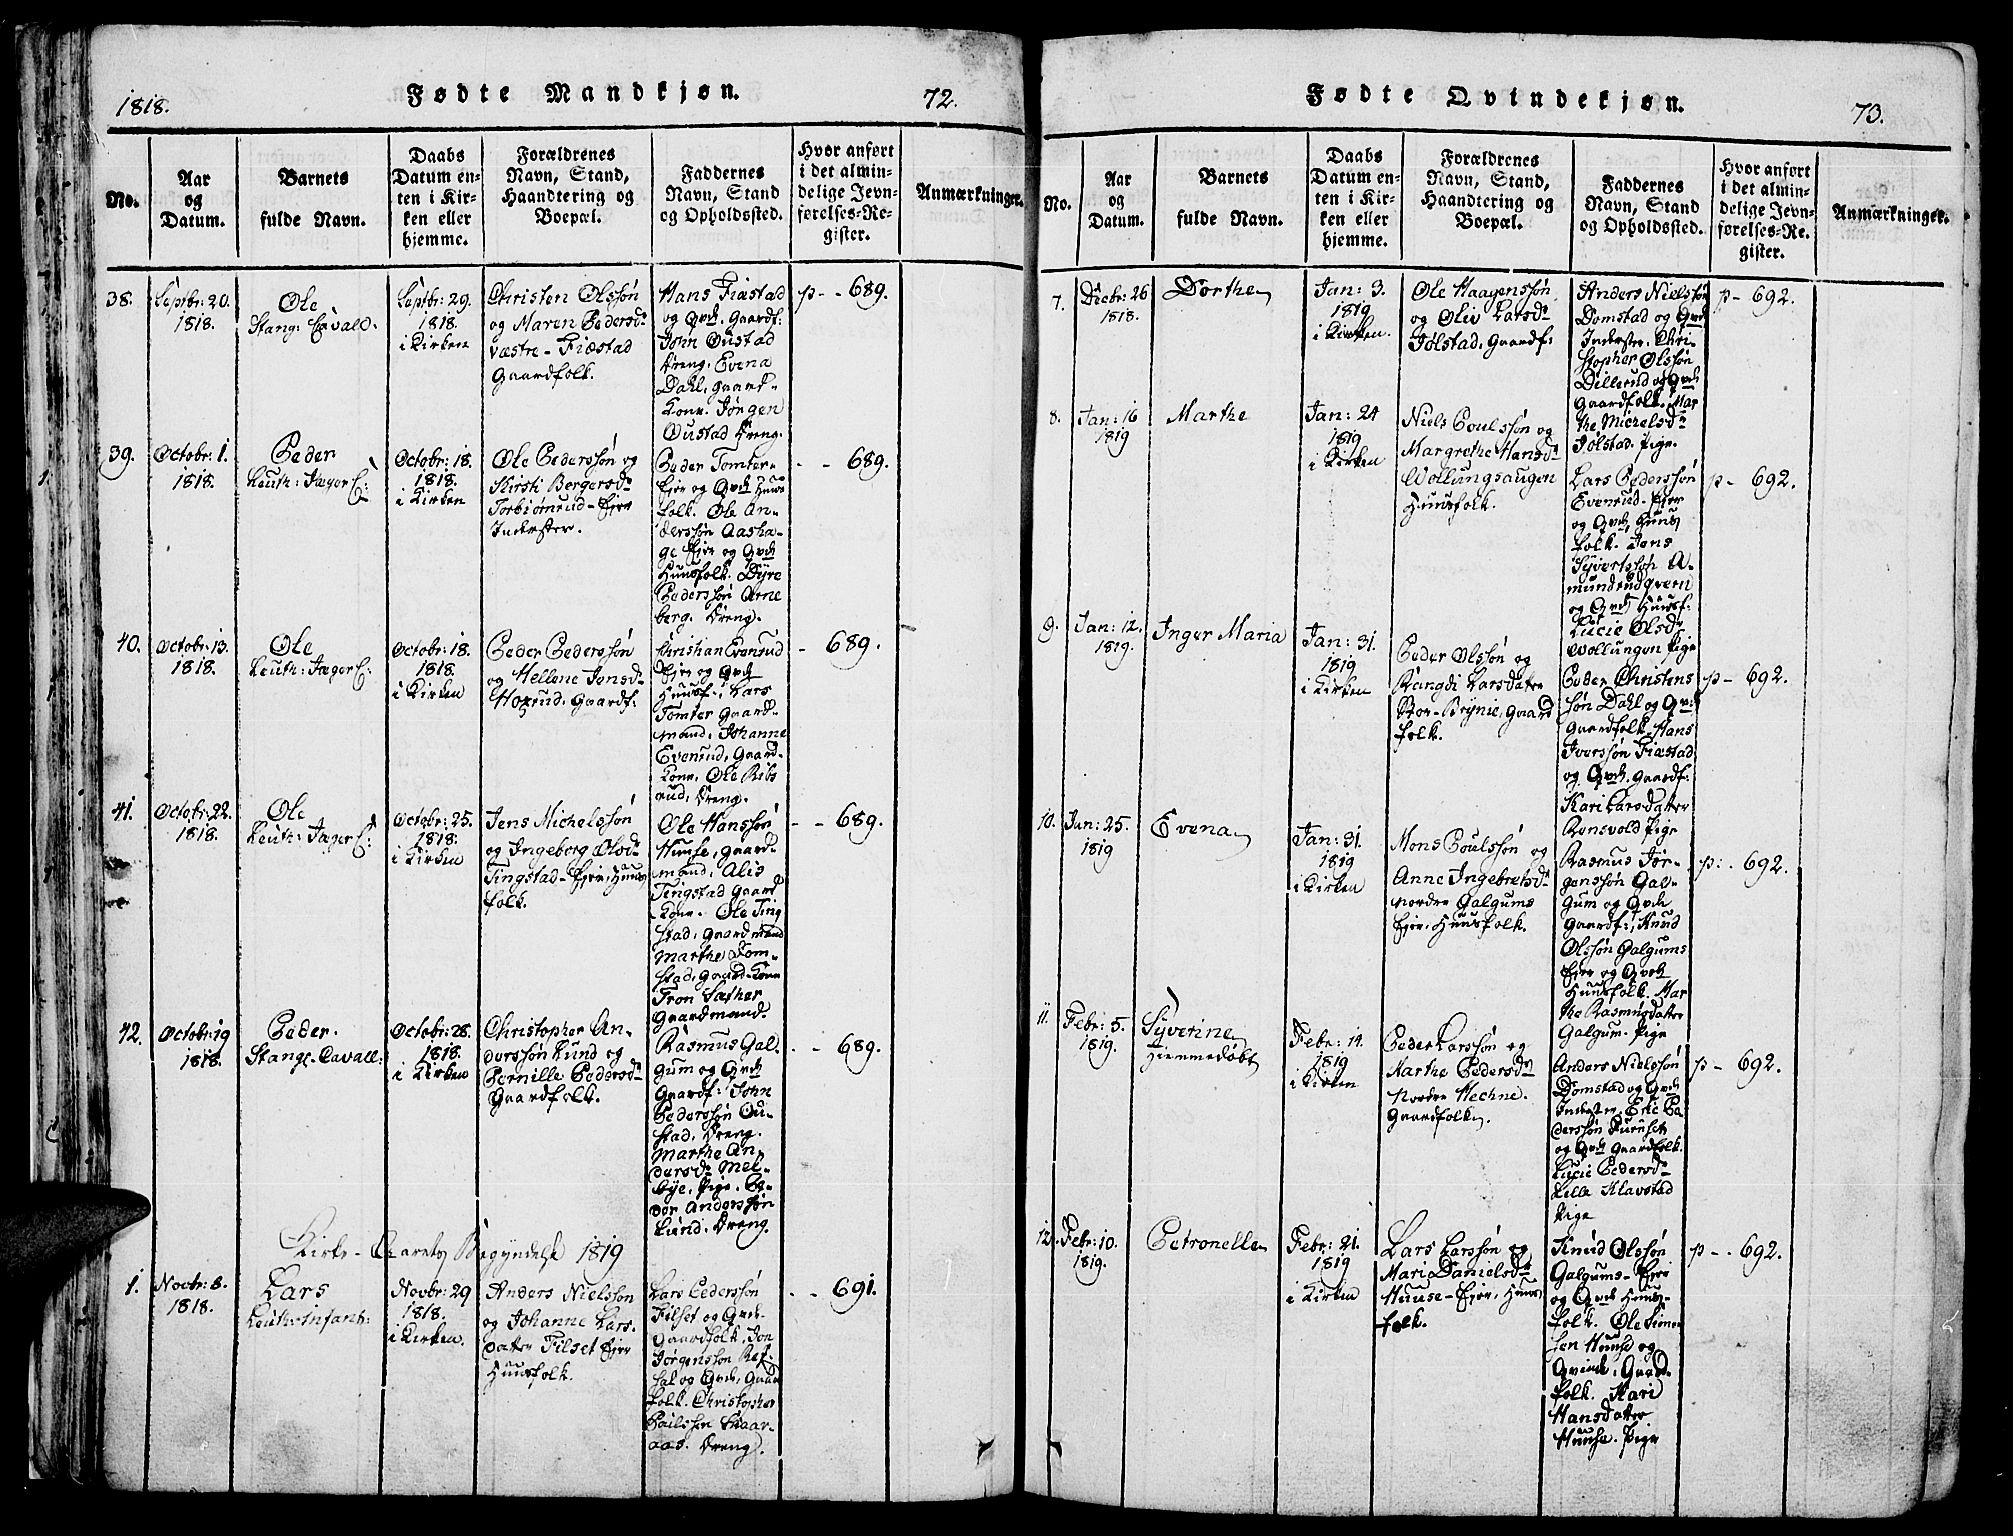 1818.
Fødte Mandkjøn.
72.
No.
Aar
og
Datum.
Barnets
fulde Navn.
Daabs
Datum en-
ten i Kir-
ken eller
hjemme.
Forældrenes
Navn, Stand,
Haandtering og
Boepæl.
Faddernes
Navn, Stand
og Opholdssted.
Hvor anført
i det almin-
delige Jevn-
førelses-Re-
gister.
Anmærkninger.
38.
Septbr: 20.
1818.
Ole
Septbr: 29.
1818.
i Kirken
Christen Olssøn
og Maren Pedersdr
væstre-Fiæstad
Gaardfolk.
Hans Fiæstad
og Qvd. Gaardf:
John Oustad
Dreng. Evena
Dahl, gaard-
Kone. Jørgen
Oustad Dreng.
p - - 689.
39.
Octobr: 1.
1818.
Peder
Leuth: Jæger C:
Octobr: 18.
1818.
i Kirken
Ole Pederssøn og
Kirsti Bergersdr
Torbiørnrud-Ejer
Inderster.
Peder Tomter-
Ejer og Qvd. Huus
folk. Ole An-
derssøn Aasha-
ge Ejer og Qvd
Huusfolk. Dyre
Pederssøn Arne
berg. Dreng.
- - 689.
40.
Octobr: 13.
1818.
Ole
Leuth: Jæger C:
Octobr: 18.
1818.
i Kirken
Peder Pederssøn
og Hellene Jonsd-
Hoxrud. Gaardf:
Christian Evenrud
Ejer og Qvd
Huusf:, Lars
Tomter Gaard-
mand, Johanne
Evenrud, Gaard-
Kone, Ole Ribs
rud, Dreng.
- 689.
41.
Octobr: 22.
1818.
Ole
Leuth: Jæger C:
Octobr: 25.
1818.
i Kirken
Jens Michelssøn
og Ingeborg Olsdr
Tingstad-Ejer, Huus
folk.
Ole Hanssøn
Huuse, gaard-
mand, Alis
Tingstad Gaard
Kone. Ole Ting
stad, Gaardmand
Marthe Tom-
stad, Gaard-Kone
Tron Sæther
Gaardmand.
- - 689.
42.
Octobr: 19
1818.
Peder.
Stange-Cavall:
Octobr: 28.
1818.
i Kirken
Christopher An-
derssøn Lund og
Pernille Pedersdr
Gaardfolk.
Rasmus Gal-
gum og Qvd
Gaardf: John
Pederssøn Ou-
stad, Dreng.
Marthe An-
dersdr Mel-
bye, Pige. Pe-
der Anderssøn
Lund, Dreng.
- - 689.
Kirke-Aarets Begyndelse 1819
1.
Novbr: 8.
1818.
Lars
Leuth: Infant:
Novbr: 29
1818.
i Kirken.
Anders Nielssøn
og Johanne Lars-
datter Filset Ejer
Huusfolk.
Lars Pederssøn
Filset og Qvd.
Gaardfolk, Jon
Jørgenssøn Ref-
sal og Qvd, Gaard
folk. Christopher
Poulssen Skaar-
aas. Dreng.
- - 691.
Fødte Qvindekjøn.
73.
No.
Aar
og
Datum.
Barnets
fulde Navn.
Daabs
Datum en-
ten i Kir-
ken eller
hjemme.
Forældrenes
Navn, Stand,
Haandtering og
Boepæl.
Faddernes
Navn, Stand
og Opholdssted.
Hvor anført
i det almin-
delige Jevn-
førelses-Re-
gister.
Anmærkninger.
7.
Decbr: 26
1818.
Dorthe
Jan: 3.
1819
i Kirken.
Ole Haagenssøn
og Oliv Larsdr
Jølstad, Gaardf:
Anders Nielssøn
Domstad og Qvd
Inderster. Chri-
stopher Olssøn
Dillerud og Qvd
Gaardfolk. Mar
the Michelsdr
Jølstad. Pige.
p - 692.
8.
Jan: 16
1819
Marthe
Jan: 24
1819
i Kirken
Niels Poulssøn og
Margrethe Hansdr
Wollungsaugen
Huusfolk.
Lars Pederssøn
Evenrud-Ejer
og Qvd, Huus
folk. Jens
Syvertssøn A-
mundrudqvern
og Qvd Huusf:
Lucie Olsdr
Wollungen Pige
p - 692.
9.
Jan: 12.
1819.
Inger Maria
Jan: 31.
1819
i Kirken
Peder Olssøn og
Rangdi Larsdatter
Stor-Brynie, Gaard
folk.
Peder Christens
søn Dahl og Qvd.
Gaardfolk. Hans
Iverssøn Fiæstad
og Qvd. Gaardf:
Kari Larsdatter
Ronsvold Pige
p - 692.
10.
Jan: 25.
1819
Evena
Jan: 31.
1819
i Kirken
Mons Poulssøn og
Anne Ingebretsdr
nordre Galgums
Ejer, Huusfolk.
Rasmus Jør-
genssøn Gal-
gum og Qvd
Gaardf:, Knud
Olssøn Galgums
Ejer og Qvd
Huusfolk. Mar
the Rasmusdatter
Galgum. Pige
p: . 692.
11.
Febr: 5.
1819.
Syverine
Hiemmedøbt
Febr: 14.
1819
i Kirken
Peder Larssøn og
Marthe Pedersdr
Nordre Hechne.
Gaardfolk.
Anders Nielssøn
Domstad og Qvd
Inderster, Eric Pe-
derssøn Kurnset
og Qvd Gaardfolk.
Lucie Pedersdr
Lille Klavstad
Pige
p - 692.
12.
Febr: 10.
1819.
Petronelle
Febr: 21.
1819
i Kirken
Lars Larssøn og
Mari Danielsdr
Huuse-Ejer, Huus
folk.
Knud Olssøn
Galgums-Ejer
og Qvd Huus-
folk. Ole Simen
sen Huuse og
Qvinde, Gaard-
folk. Kari
Hansdatter
Huuse. Pige
p - . 692.